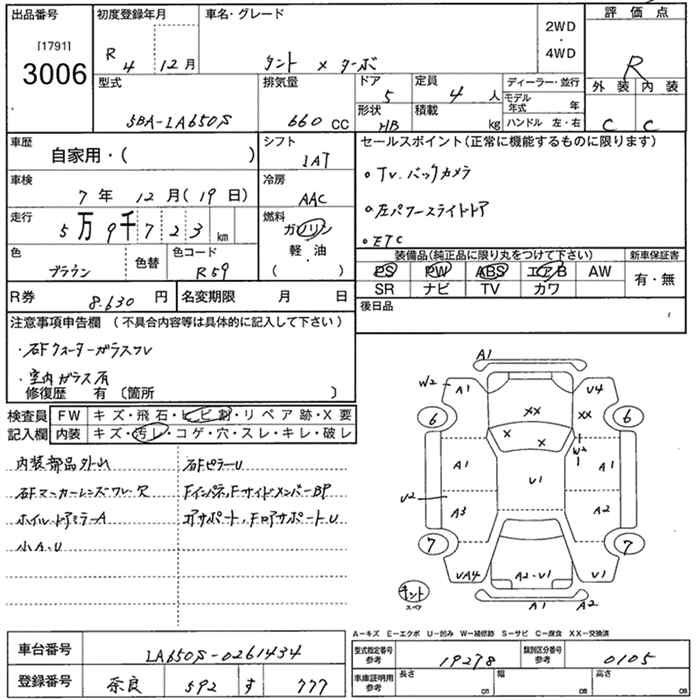 出品番号 初度登録年月 車名・グレード 評価点
[1791] R 4 12月 2WD・4WD R
3006 タント X ターボ
型式 排気量 ドア 5 定員 4 人 ディーラー・並行 外装 内装
5BA-LA650S 660 CC 形状 HB 積載 kg モデル年式 年 C C
ハンドル 左・右
車歴 自家用・( ) シフト 1AT セールスポイント(正常に機能するものに限ります)
車検 7年 12月(19日) 冷房 AAC ・TV.バックカメラ
走行 5万9千723 km 燃料 ガソリン ・左パワースライドドア
軽・油 ・ETC
色 ブラウン 色替 色コード R59 ( ・ ) 装備品(純正品に限り丸をつけて下さい) 新車保証書
PS PW ABS エアB AW 有・無
R券 8.630 円 名変期限 月 日 SR ナビ TV カワ
注意事項申告欄(不具合内容等は具体的に記入して下さい) 後日品
・右Fクォーターガラスワレ
・室内ガラス有
修復歴 有〔箇所 〕
検査員 FW キズ・飛石・ヒビ割・リペア跡・X要
記入欄 内装 キズ・汚レ・コゲ・穴・スレ・キレ・破レ
内装部品外れ 右FピラーU
右FマーカーレンズワレR Fインパネ,FサイドメンバーBP
ホイル・ドアミラーA コアサポート,FロアサポートU
小A.U
A1
W2 A1 U4
6 XX XX 6
X X W2
A1 U1 A1
U2 A3 A2
7 7
UA4 A2-U1 U1
キット スペア A1 A2
A-キズ E-エクボ U-凹み W-補修跡 S-サビ C-腐食 XX-交換済
車台番号 LA650S-0261434 型式指定番号 参考 19278 類別区分番号 参考 0105
登録番号 奈良 592 す 777 車庫証明用 参考 長さ cm 幅 cm 高さ cm